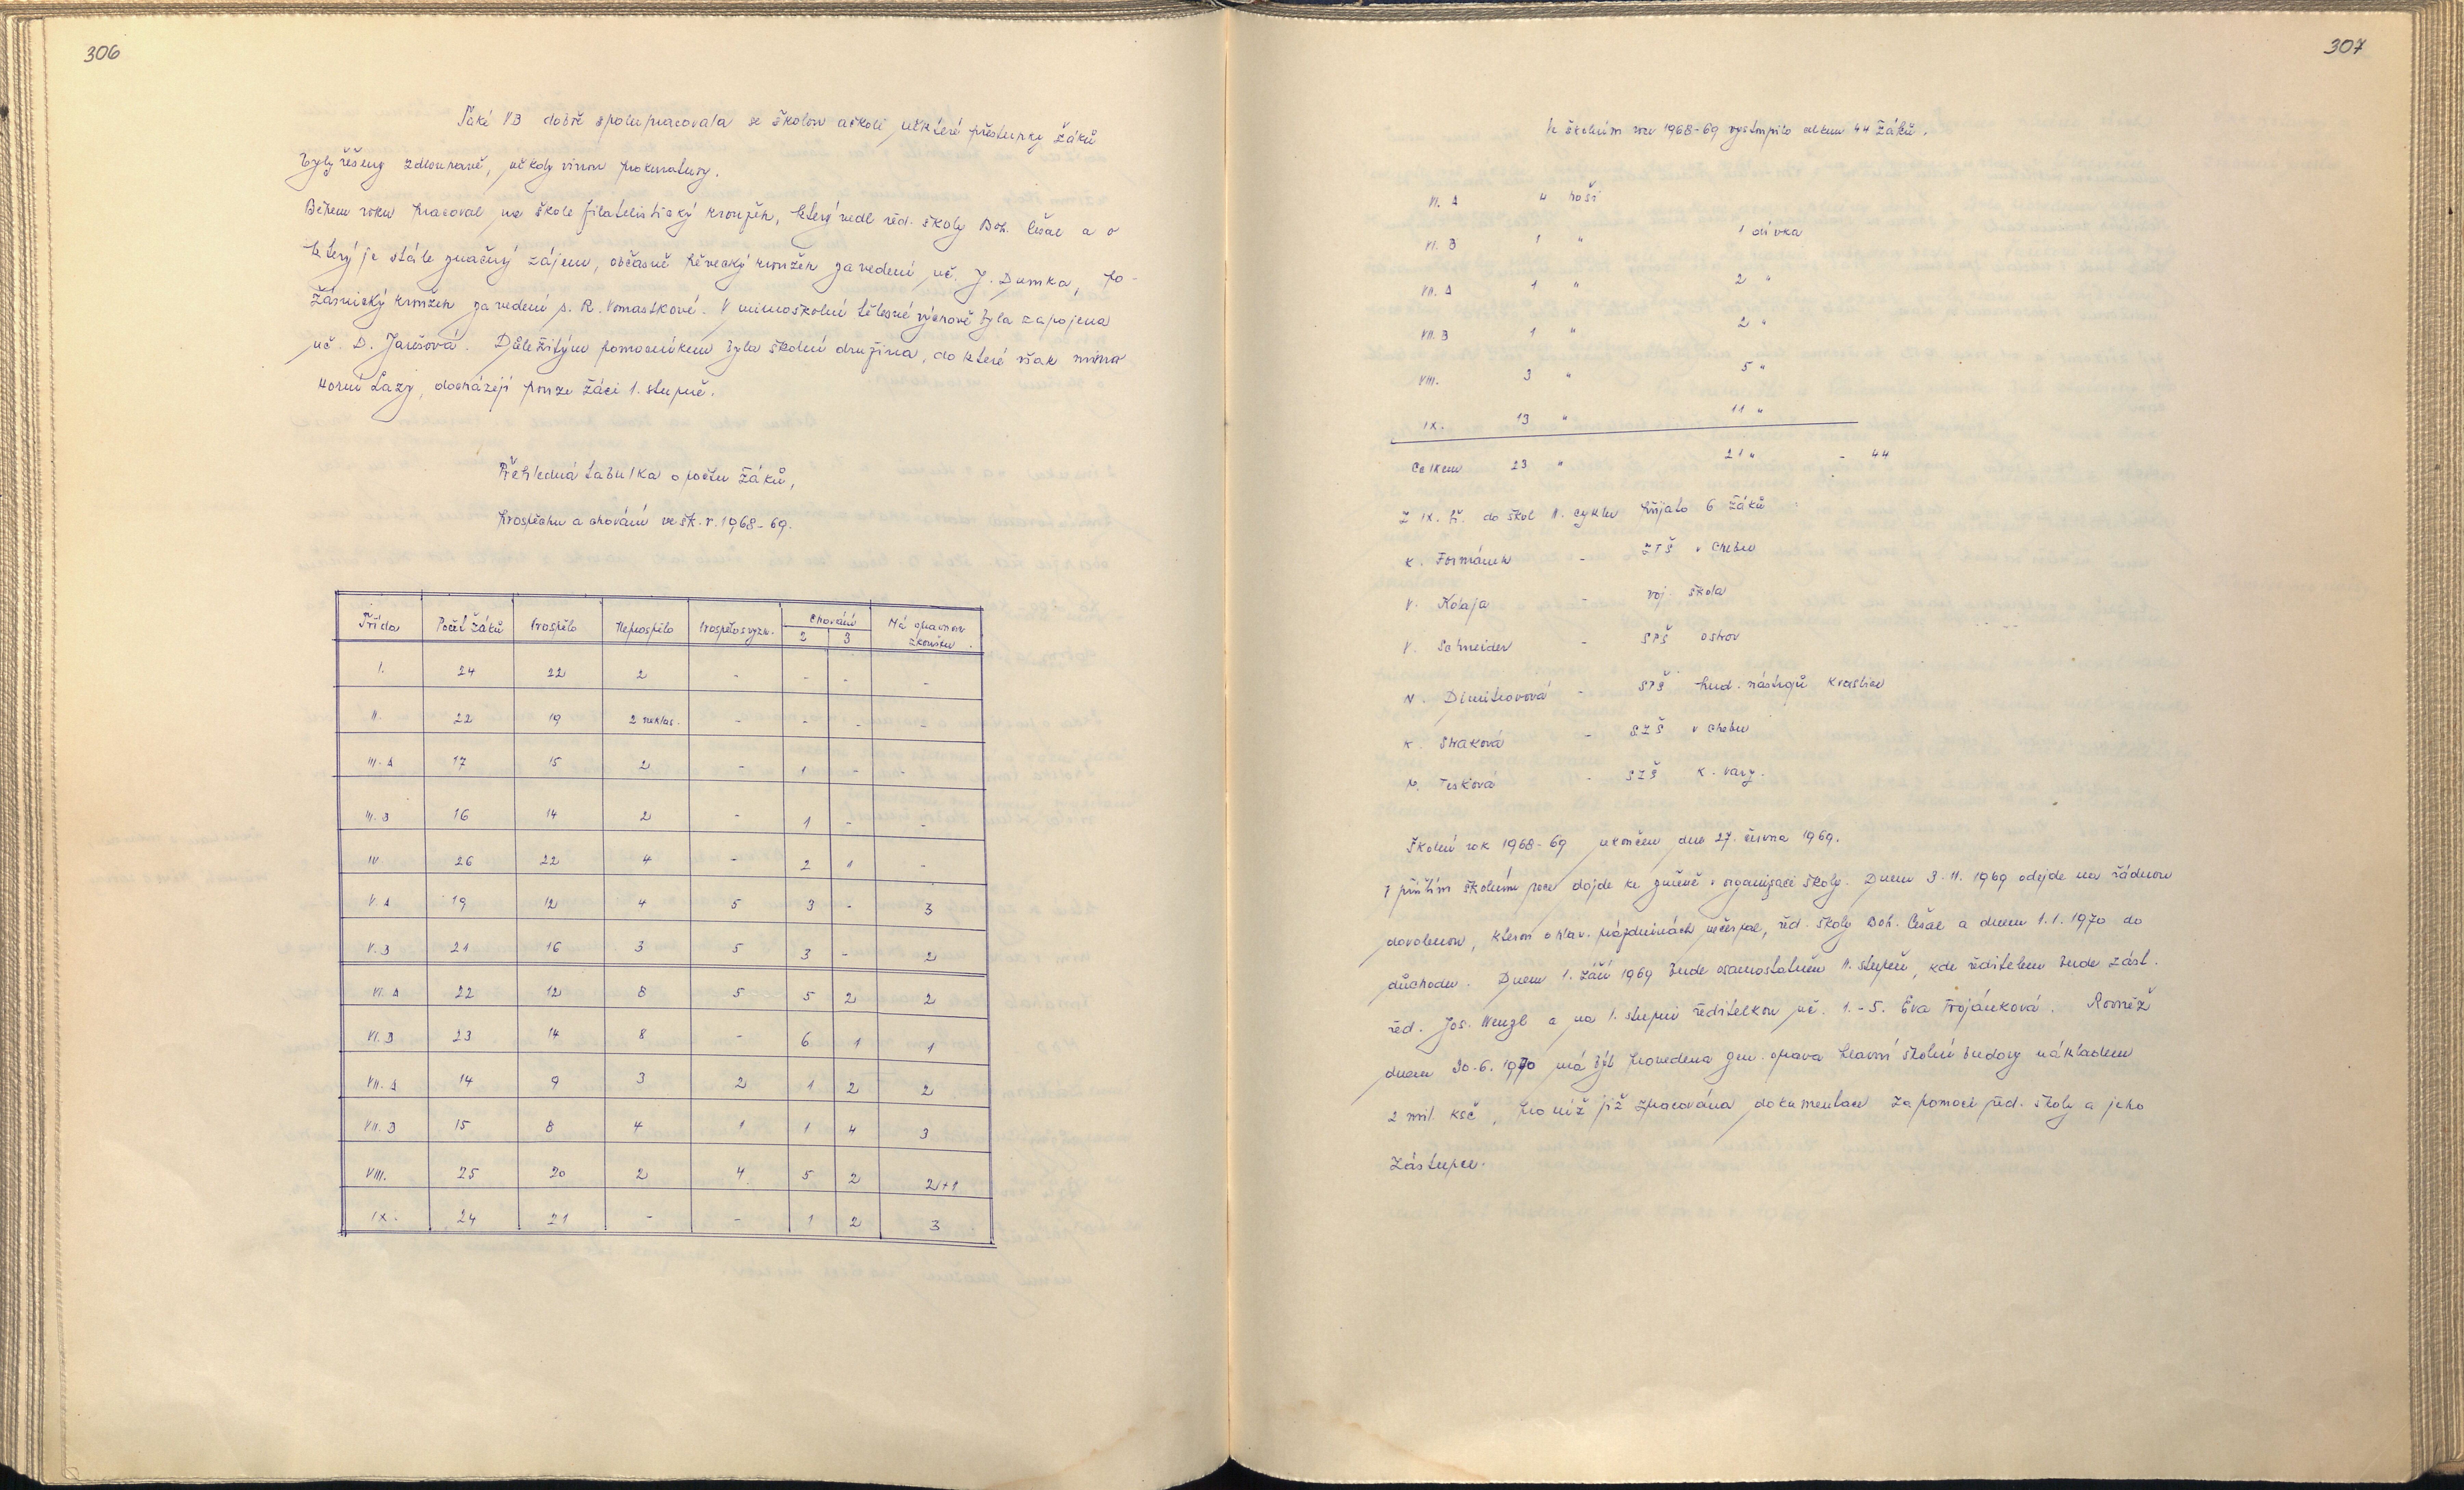 306
Také VB dobře spolupracovala se školou ačkoli některé přestupky žáků
byly řešeny zdlouhavě, někdy vinou prokuratury.
Během roku pracoval na škole filatelistický kroužek, který vedl řed. školy Boh. Česal a o
který je stále značný zájem, občasně pěvecký kroužek za vedení uč. J. Dumka, po-
žárnický kroužek za vedení s. R. Vomastkové. V mimoškolní tělesné výchově byla zapojena
uč. D. Jarešová. Důležitým pomocníkem byla školní družina, do které však mimo
Horní Lazy, docházejí pouze žáci 1. stupně.
Přehledná tabulka o počtu žáků,
prospěchu a chování ve šk. r. 1968-69.
Třída Počet žáků Prospělo Neprospělo Prospělo s vyzn. Chování 2 3 Má opravnou zkoušku.
I. 24 22 2 - - - -
II. 22 19 2 neklas. - - - -
III. A 17 15 2 - 1 - -
III. B 16 14 2 - 1 - -
IV 26 22 4 - 2 1 -
V. A 19 12 4 5 3 - 3
V. B 21 16 3 5 3 - 2
VI. A 22 12 8 5 5 2 2
VI. B 23 14 8 - 6 1 1
VII. A 14 9 3 2 1 2 2
VII. B 15 8 4 1 1 4 3
VIII. 25 20 2 4 5 2 2+1
IX. 24 21 - - 1 2 3
307
Ve školním roce 1968-69 vystoupilo celkem 44 žáků.
VI. A 4 hoši
VI. B 1 " 1 dívka
VII. A 1 " 2 "
VII. B 1 " 2 "
VIII. 3 " 5 "
IX. 13 " 11 "
Celkem 23 " 21 " - 44
Z IX. tř. do škol II. cyklu přijato 6 žáků :
K. Formánek - ZTŠ v Chebu
V. Kolaja - voj. škola
V. Schneider - SPŠ Ostrov
N. Dimitrovová - SPŠ hud. nástrojů Kraslice
K. Straková - SZŠ v Chebu
M. Tesková - SZŠ K. Vary.
Školní rok 1968-69 ukončen dne 27. června 1969.
V příštím školním roce dojde ke změně v organizaci školy. Dnem 3. 11. 1969 odejde na řádnou
dovolenou, kterou o hlav. prázdninách nečerpal, řed. školy Boh. Česal a dnem 1. 1. 1970 do
důchodu. Dnem 1. září 1969 bude osamostatněn II. stupeň, kde ředitelem bude zást.
řed. Jos. Wenzl a na I. stupni ředitelkou uč. 1.-5. Eva Trojánková. Rovněž
dnem 30. 6. 1970 má být provedena gen. oprava hlavní školní budovy nákladem
2 mil. Kčs, pro níž již zpracována dokumentace za pomoci řed. školy a jeho
zástupce.